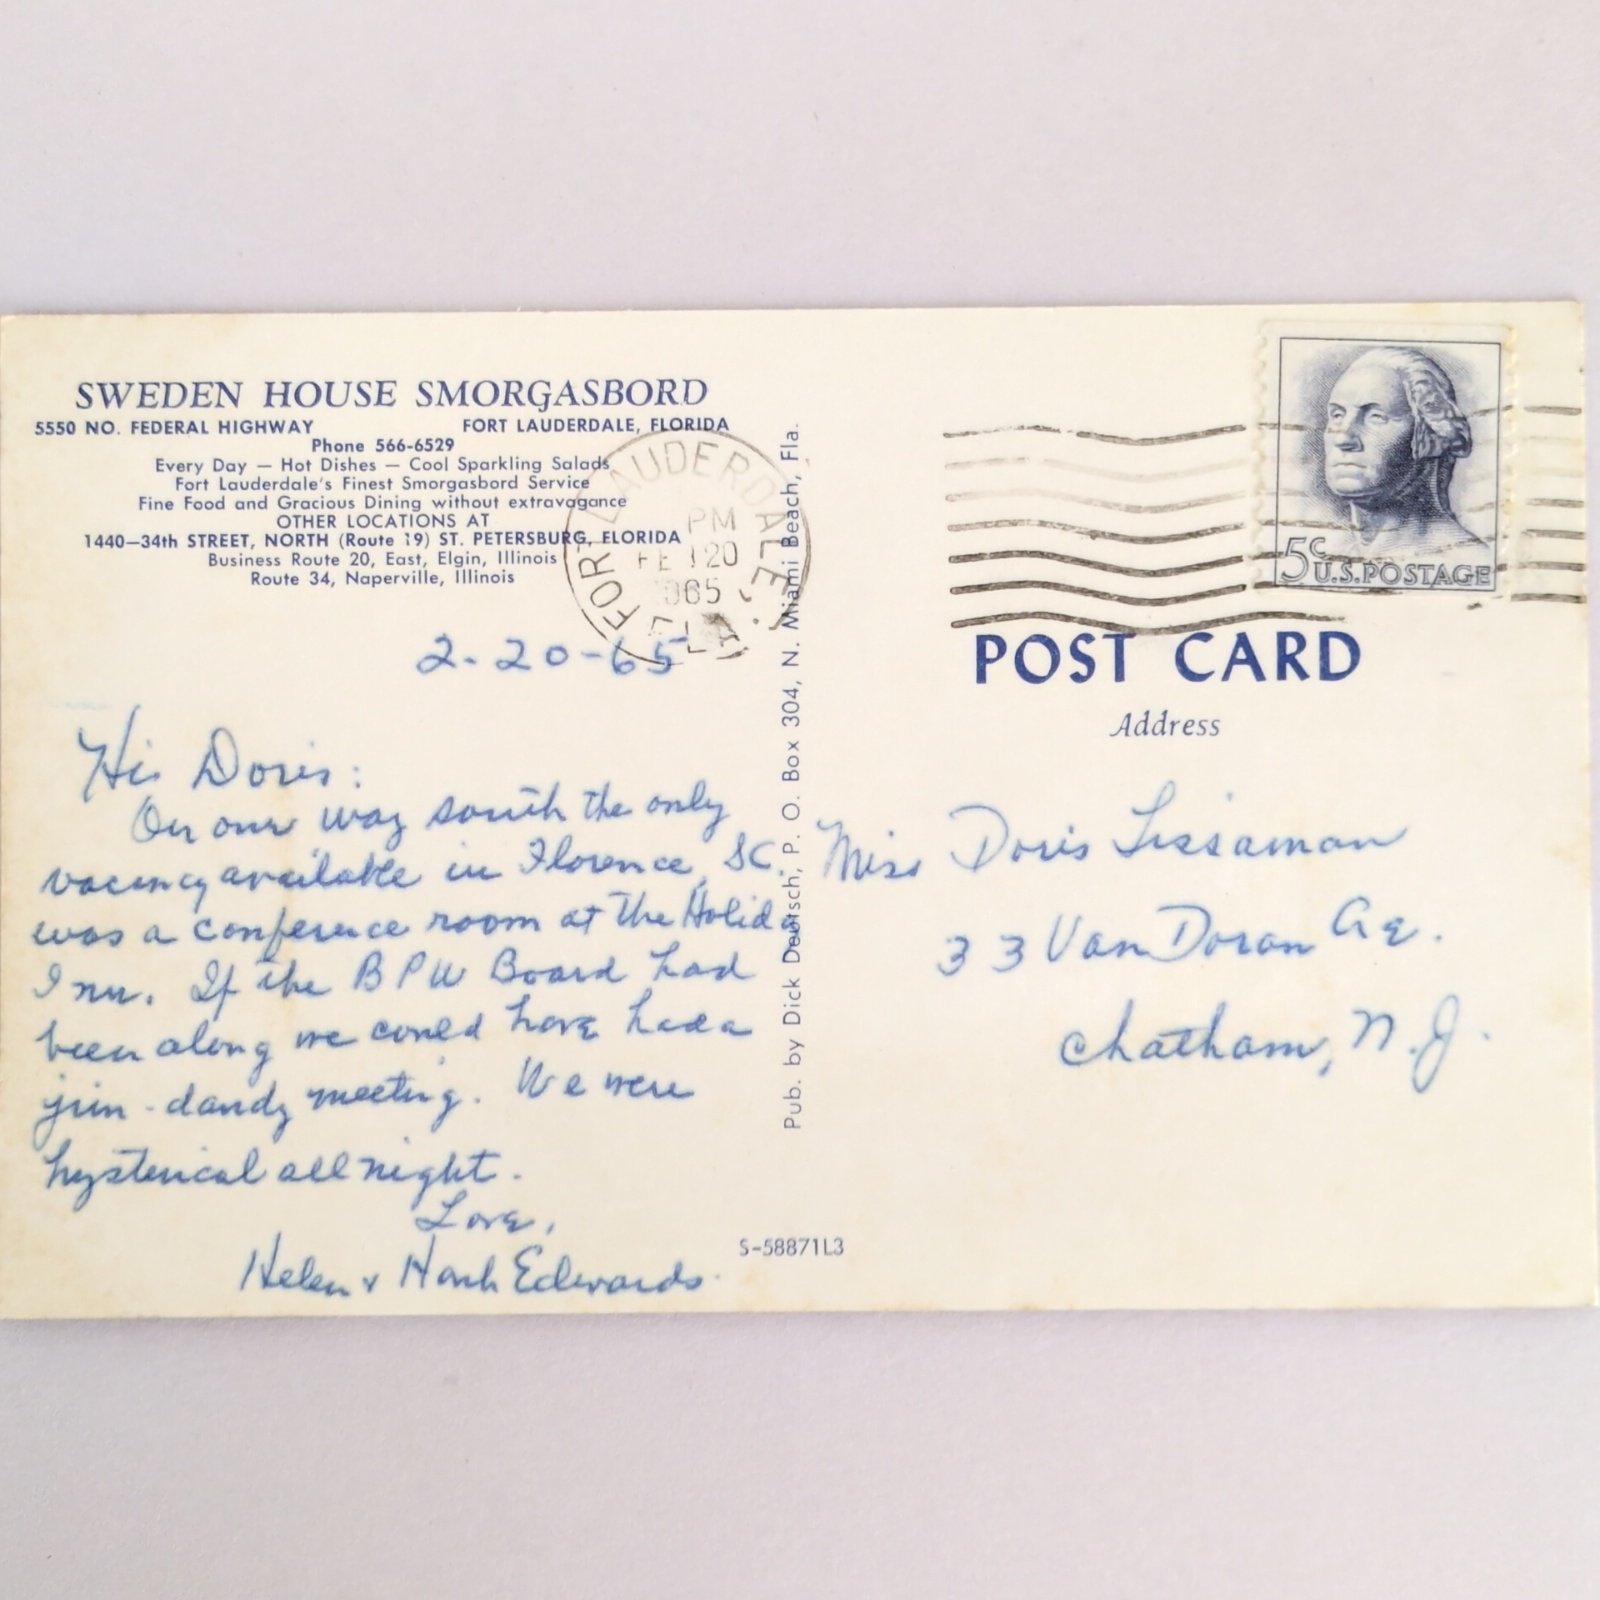 SWEDEN HOUSE SMORGASBORD
5550 NO. FEDERAL HIGHWAY FORT LAUDERDALE, FLORIDA
Phone 566-6529
Every Day — Hot Dishes — Cool Sparkling Salads
Fort Lauderdale's Finest Smorgasbord Service
Fine Food and Gracious Dining without extravagance
OTHER LOCATIONS AT
1440—34th STREET, NORTH (Route 19) ST. PETERSBURG, FLORIDA
Business Route 20, East, Elgin, Illinois
Route 34, Naperville, Illinois
FORT LAUDERDALE, FLA.
PM
FEB 20
1965
2-20-65
Hi Doris:
On our way south the only
vacancy available in Florence, SC.
was a conference room at the Holiday
Inn. If the BPW Board had
been along we could have had a
jim-dandy meeting. We were
hysterical all night.
Love,
Helen & Edwards.
Pub. by Dick Deutsch, P. O. Box 304, N. Miami Beach, Fla.
S-58871L3
5c U.S.POSTAGE
POST CARD
Address
Miss Doris Lissaman
33 Van Doran Ave.
Chatham, N.J.